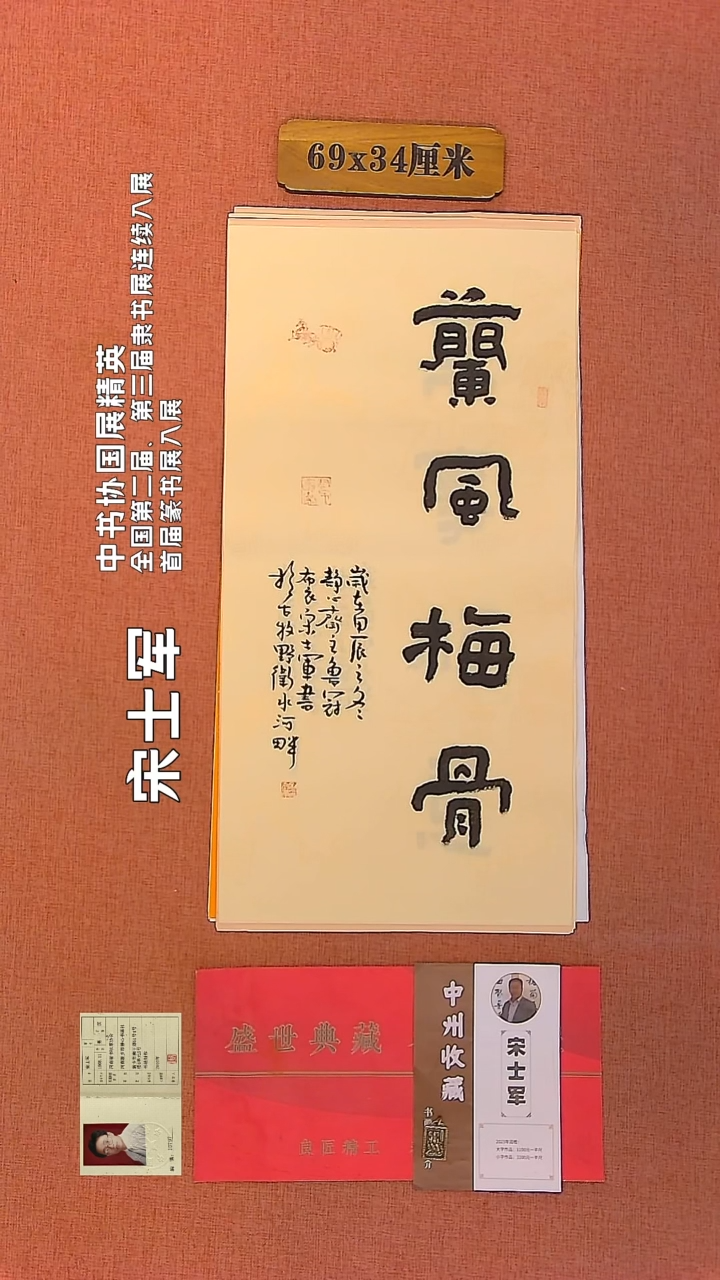 69x34厘米
蘭
風
梅
骨
歲在甲辰之冬
靜心齋主魯冠
布衣宋士軍書
於古牧野衛水河畔
中书协国展精英
全国第二届、第三届隶书展连续入展
首届篆书展入展
宋士军
盛世典藏
良匠精工
中州收藏
书画
介
宋士军